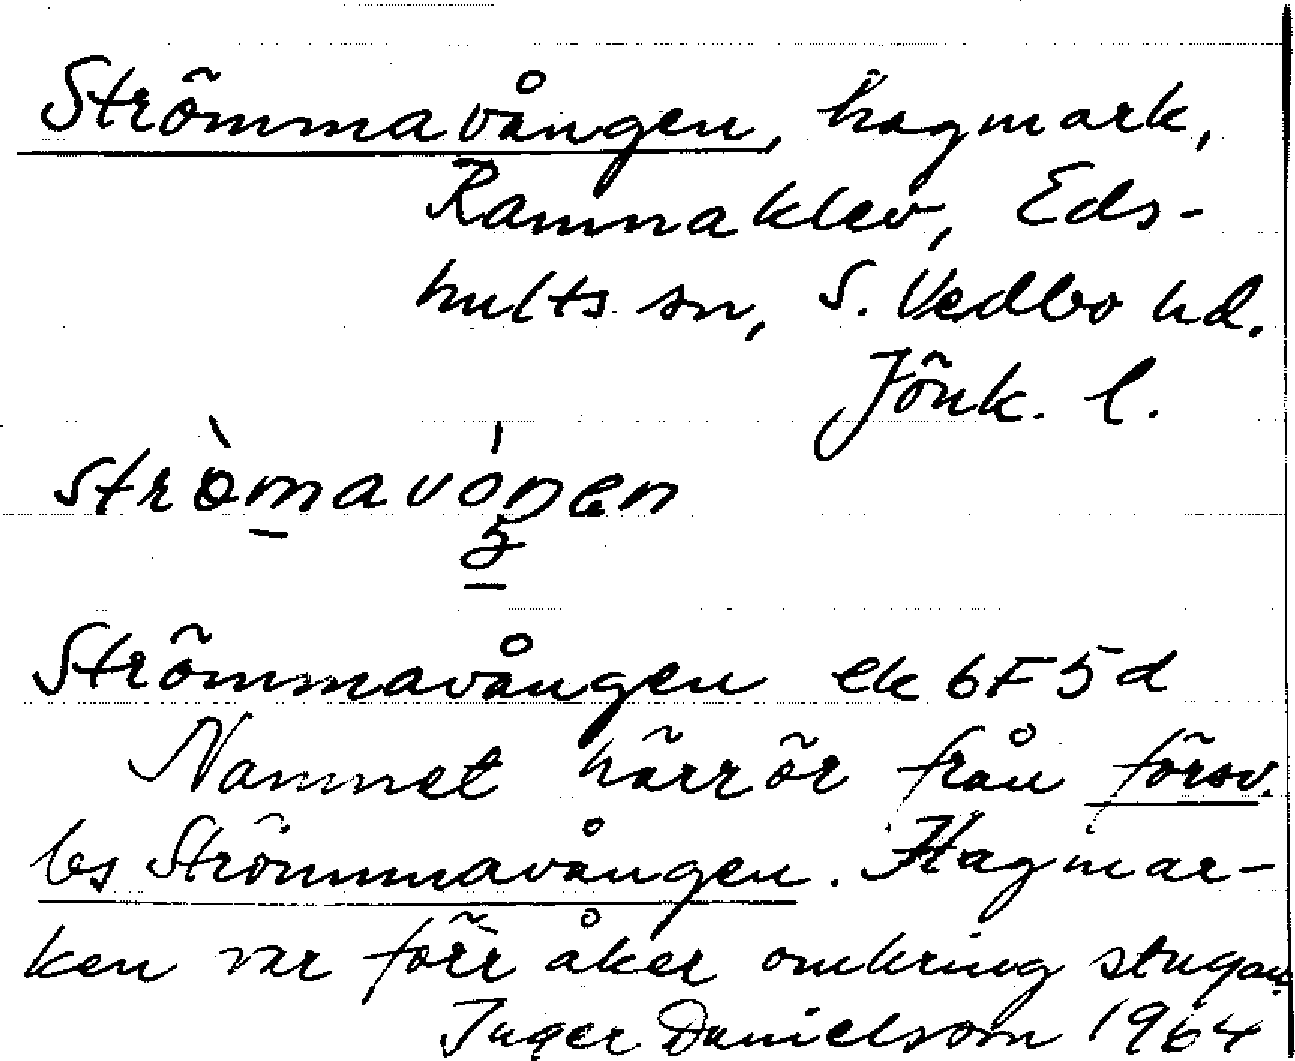 Strömmavången, hagmark,
Ramnaklev, Eds-
hults sn, S. Vedbo hd.
Jönk. l.
stròmavóŋen
Strömmavången ek 6F5d
Namnet härrör från försv.
bs Strömmavången. Hagmar-
ken var förr åker omkring stugan
Inger Danielsson 1964